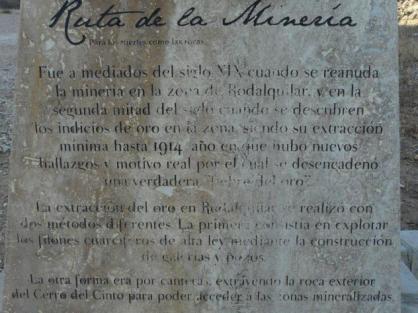 Ruta de la Minería
Para los fuertes como las rocas
Fue a mediados del siglo XIX cuando se reanuda
la minería en la zona de Rodalquilar, y en la
segunda mitad del siglo cuando se descubren
los indicios de oro en la zona, siendo su extracción
mínima hasta 1914, año en que hubo nuevos
hallazgos y motivo real por el cual se desencadenó
una verdadera "Fiebre del oro".
La extracción del oro en Rodalquilar se realizó con
dos métodos diferentes. La primera consistía en explotar
los filones cuarcíferos de alta ley mediante la construcción
de galerías y pozos.
La otra forma era por canteras, extrayendo la roca exterior
del Cerro del Cinto para poder acceder a las zonas mineralizadas.